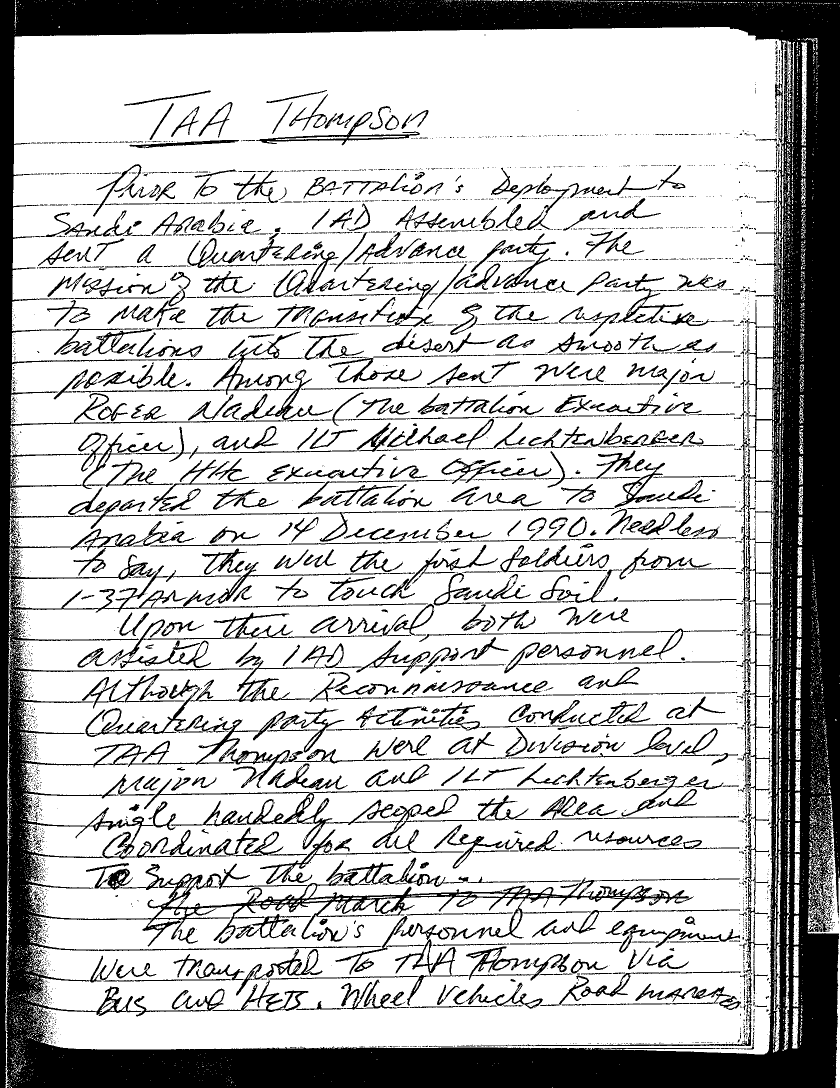 TAA Thompson
Prior To the Battalion's Deployment to
Saudi Arabia, 1AD Assembled and
sent a Quartering/Advance party. The
mission of the Quartering/advance Party was
to make the transition of the respective
battalions into the desert as smooth as
possible. Among those sent were major
Roger Nadeau (the battalion Executive
Officer), and 1LT Michael Lechtenberger
(The HHC executive officer). They
departed the battalion area to Saudi
Arabia on 14 December 1990. Needless
to say, they were the first soldiers from
1-37 Armor to touch Saudi Soil.
Upon their arrival, both were
assisted by 1AD support personnel.
Although the Reconnaissance and
Quartering party activities conducted at
TAA Thompson were at Division level,
major Nadeau and 1LT Lechtenberger
single handedly scoped the area and
Coordinated for all required resources
To support the battalion...
The Road march To TAA Thompson
The battalion's personnel and equipment
were transported To TAA Thompson Via
Bus and HETs. Wheel vehicles Road marched